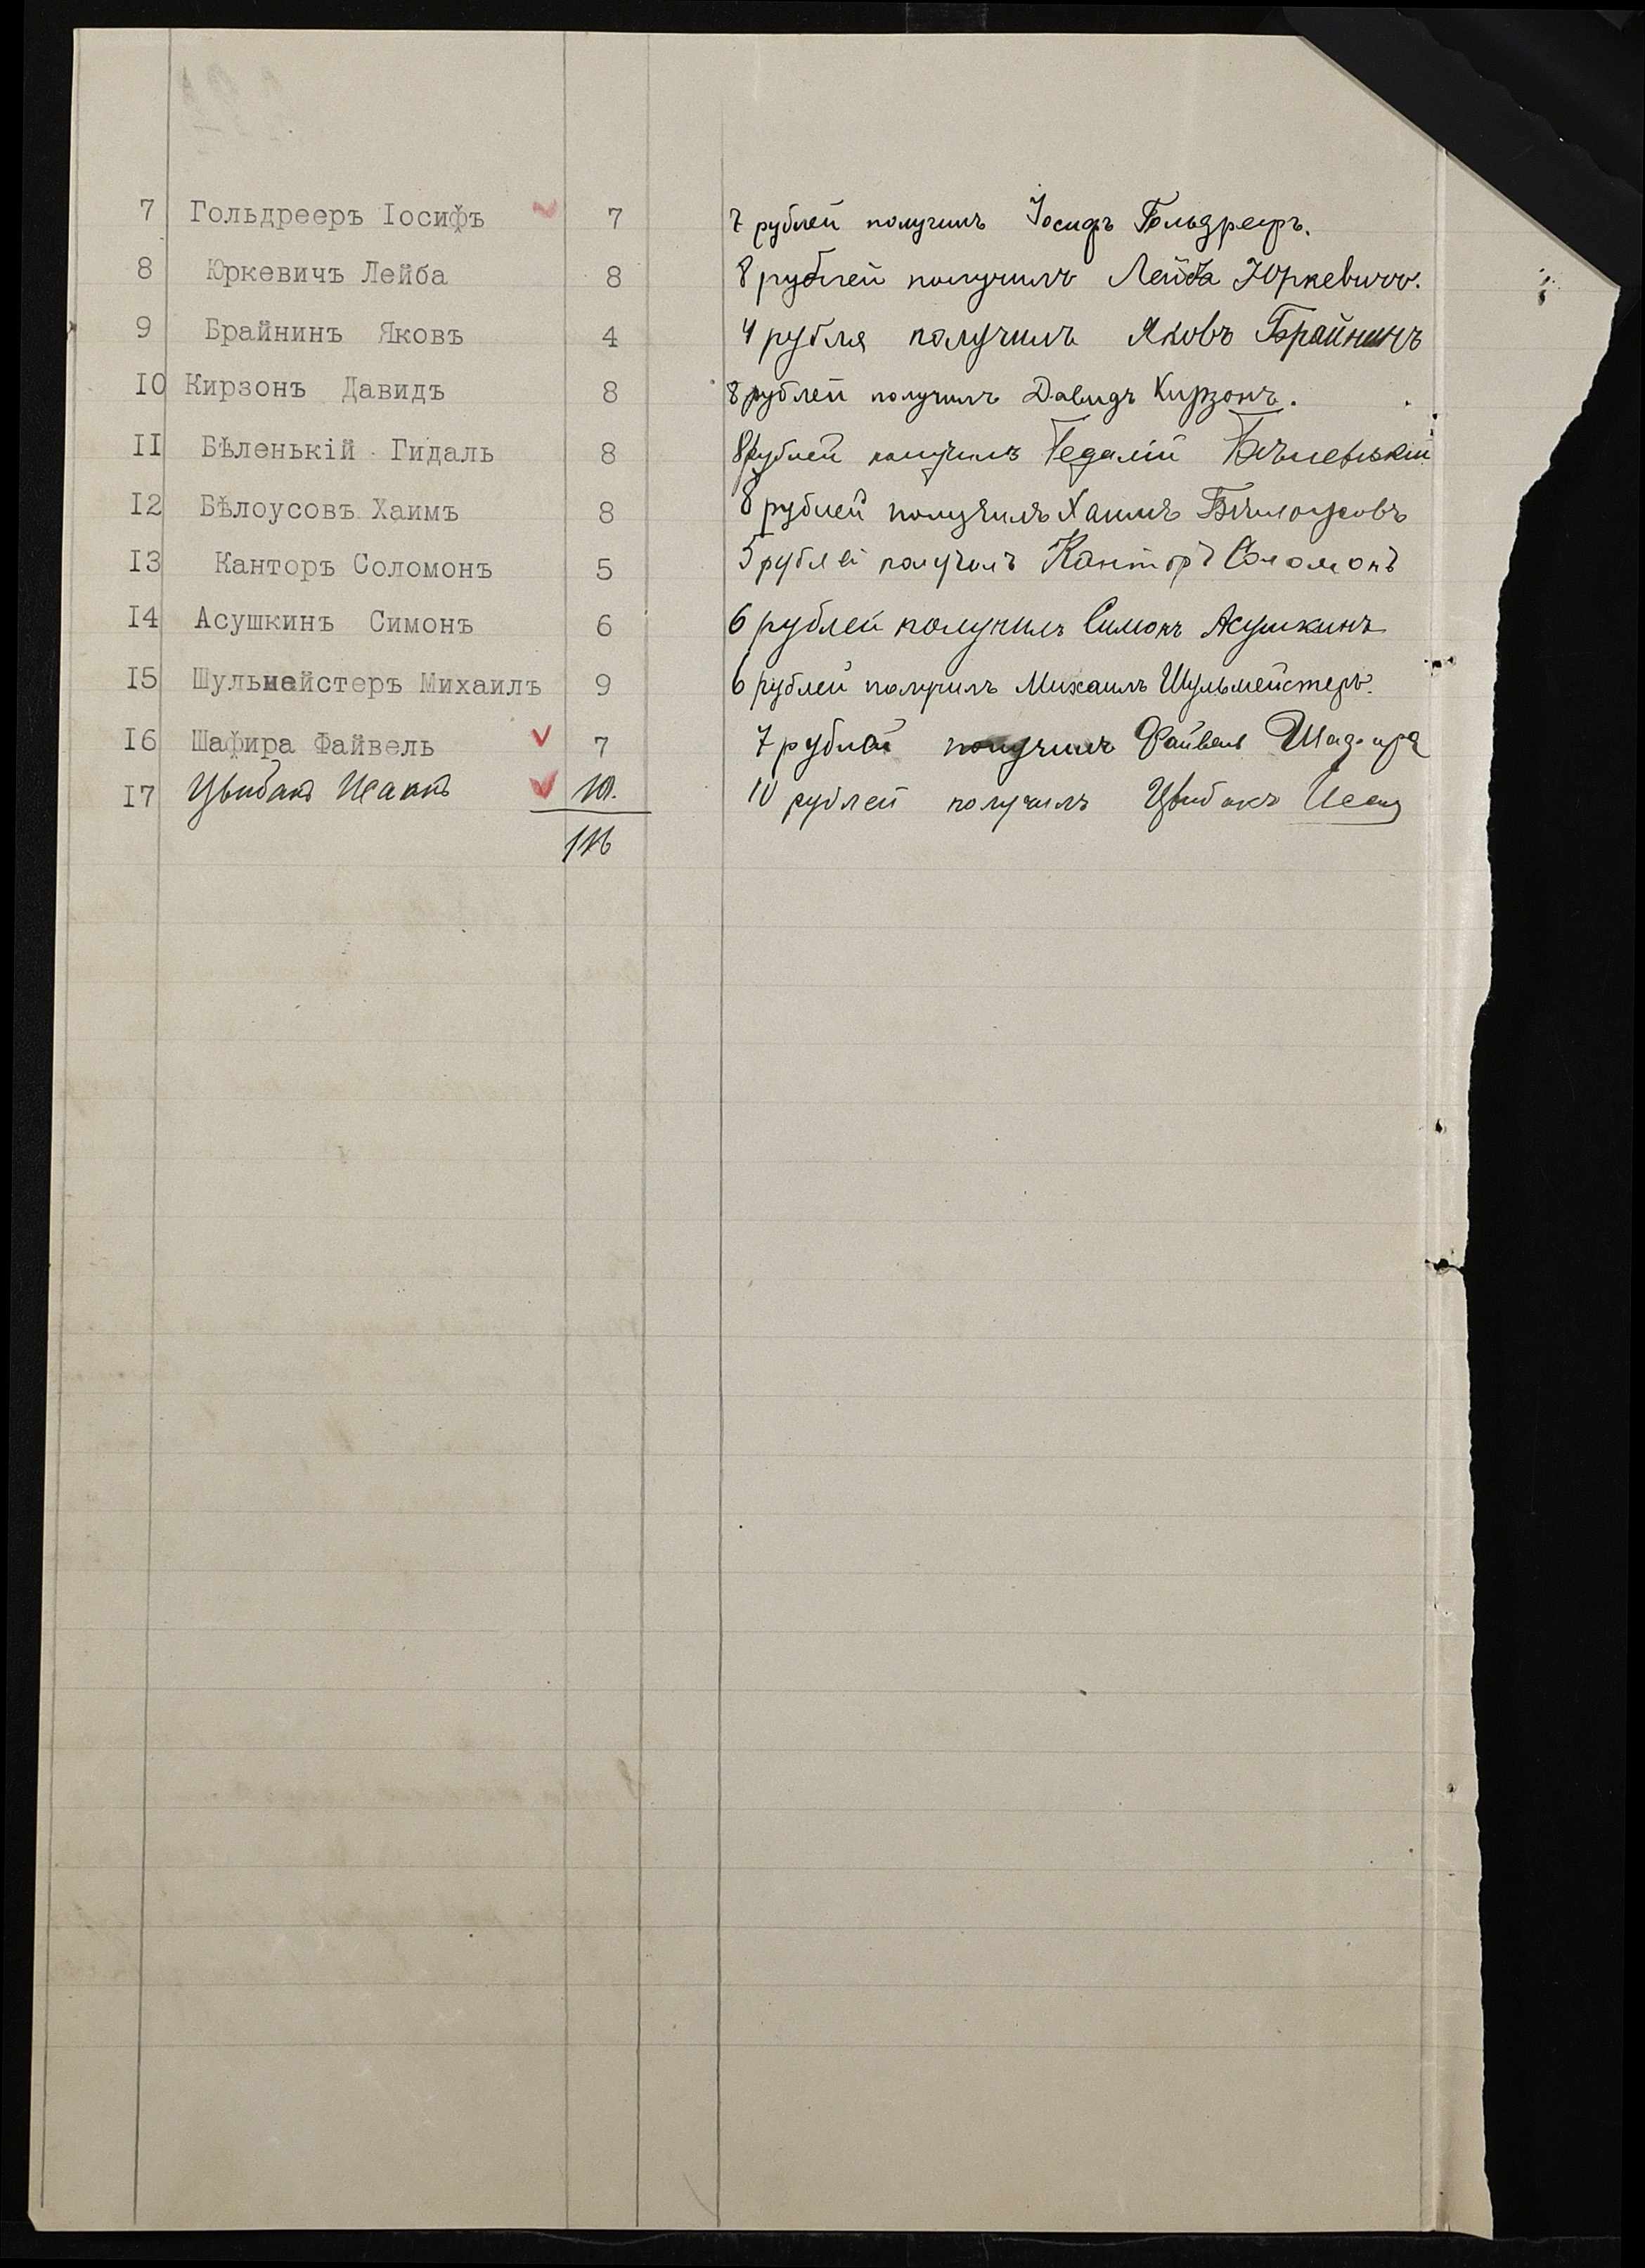 7 Гольдрееръ Іосифъ 7 7 рублей получилъ Іосифъ Гольдрееръ.
8 Юркевичъ Лейба 8 8 рублей получилъ Лейба Юркевичъ.
9 Брайнинъ Яковъ 4 4 рубля получилъ Яковъ Брайнинъ
10 Кирзонъ Давидъ 8 8 рублей получилъ Давидъ Кирзонъ.
II Бѣленькій Гидаль 8 8 рублей получилъ Гедалій Бѣленькій
I2 Бѣлоусовъ Хаимъ 8 8 рублей получилъ Хаимъ Бѣлоусовъ
I3 Канторъ Соломонъ 5 5 рублей получилъ Канторъ Соломонъ
I4 Асушкинъ Симонъ 6 6 рублей получилъ Симонъ Асушкинъ
I5 Шульмейстеръ Михаилъ 9 6 рублей получилъ Михаилъ Шульмейстеръ.
I6 Шафира Файвель 7 7 рублей получилъ Файвель Шафира
I7 Цвибакъ Исаакъ 10. 10 рублей получилъ Цвибакъ